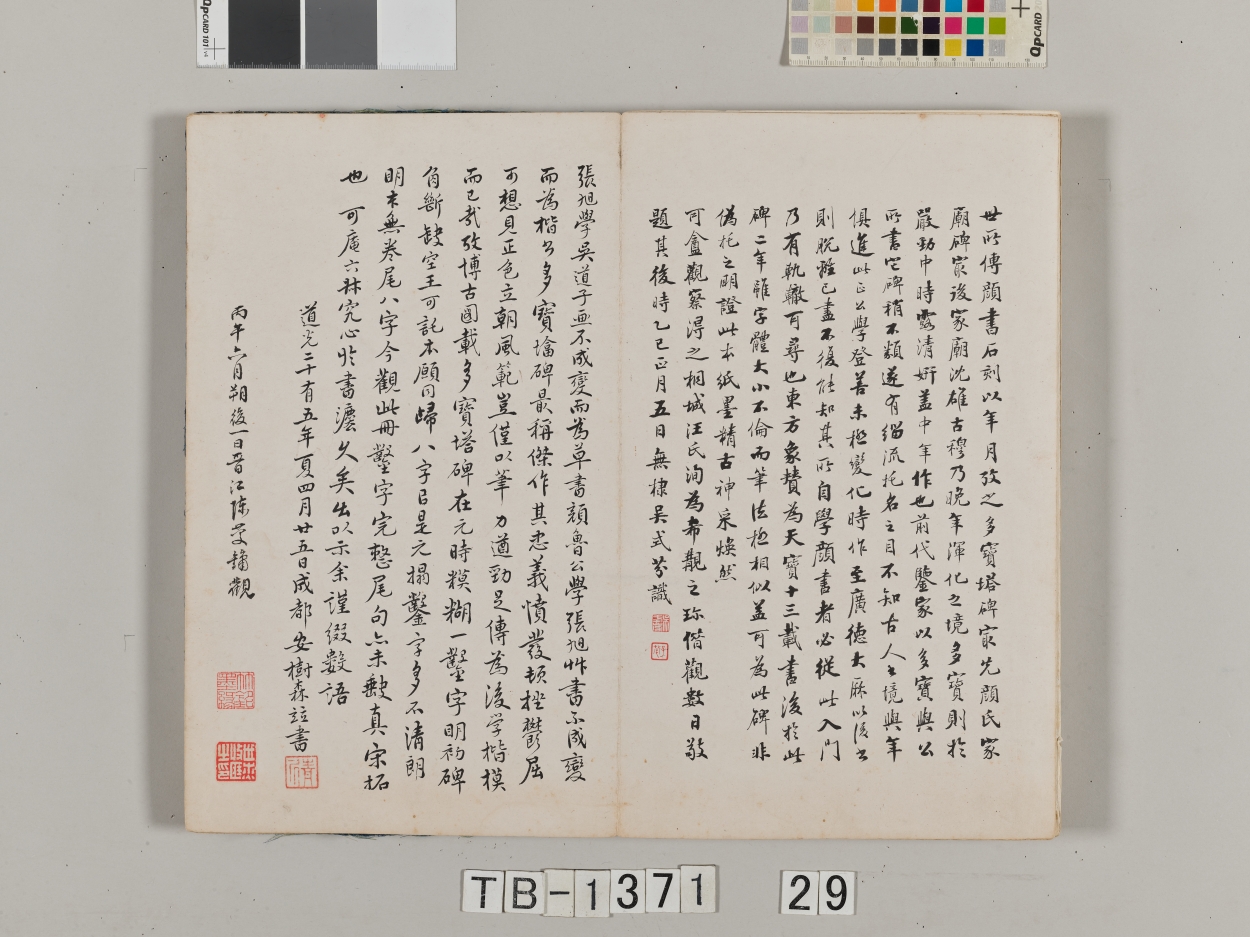 世所傳顔書石刻以年月攷之多寶塔碑㝡先顔氏家
廟碑㝡後家廟沈雄古穆乃晚年渾化之境多寶則於
嚴勁中時露清妍蓋中年作也前代鑒家以多寶與公
所書它碑稍不類遂有緇流托名之目不知古人之境與年
俱進此正公學登善未極變化時作至廣德大厤以後書
則脱雅已盡不復能知其所自學顔書者必從此入門
乃有軌轍可尋也東方象贊為天寶十三載書後於此
碑二年雖字體大小不倫而筆法極相似蓋可為此碑非
偽托之明證此本紙墨精古神采煥然
可盒觀察得之桐城汪氏洵為希覯之珎借觀數日敬
題其後時乙巳正月五日無棣吳式芬識
張旭學吳道子画不成變而為草書顔魯公學張旭艸書不成變
而為楷書多寶墖碑最稱傑作其忠義憤發頓挫鬱屈
可想見正色立朝風範豈僅以筆力遒勁足傳為後学楷模
而已哉攷博古圖載多寶塔碑在元時糢糊一鑿字明初碑
角斷缺空王可託本願同歸八字已是元搨鑿字多不清朗
明末無卷尾八字今觀此冊鑿字完整尾句亦未缺真宋拓
也可庵六秝究心於書灋久矣出以示余謹綴數語
道光二十有五年夏四月廿五日成都安樹森竝書
丙午六月朔後一日晉江陳慶鏞觀
TB-1371 29
QpCARD 101 v4
QpCARD